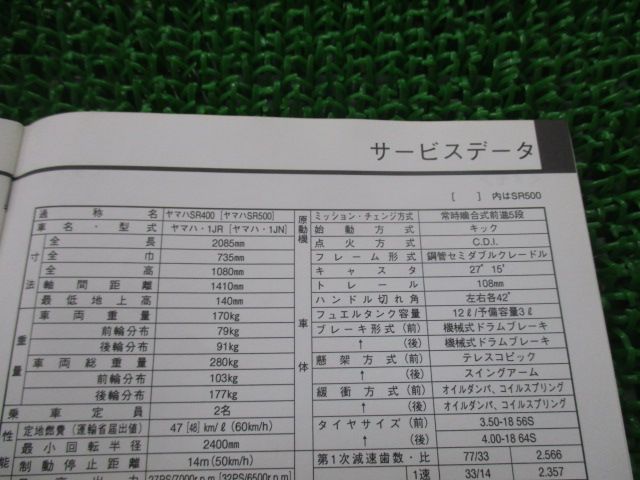 サービスデータ
[ ] 内はSR500
通称名 ヤマハSR400 [ヤマハSR500]
車名・型式 ヤマハ・1JR [ヤマハ・1JN]
寸法
全長 2085mm
全巾 735mm
全高 1080mm
軸間距離 1410mm
最低地上高 140mm
重量
車両重量 170kg
前輪分布 79kg
後輪分布 91kg
車両総重量 280kg
前輪分布 103kg
後輪分布 177kg
乗車定員 2名
性能
定地燃費(運輸省届出値) 47 [48] km/ℓ (60km/h)
最小回転半径 2400mm
制動停止距離 14m (50km/h)
27PS/7000r.p.m [32PS/6500r.p.m
原動機
ミッション・チェンジ方式 常時噛合式前進5段
始動方式 キック
点火方式 C.D.I.
車体
フレーム形式 鋼管セミダブルクレードル
キャスタ 27°15′
トレール 108mm
ハンドル切れ角 左右各42°
フュエルタンク容量 12ℓ/予備容量3ℓ
ブレーキ形式(前) 機械式ドラムブレーキ
↑ (後) 機械式ドラムブレーキ
懸架方式(前) テレスコピック
↑ (後) スイングアーム
緩衝方式(前) オイルダンパ、コイルスプリング
↑ (後) オイルダンパ、コイルスプリング
タイヤサイズ(前) 3.50-18 56S
↑ (後) 4.00-18 64S
第1次減速歯数・比 77/33 2.566
1速 33/14 2.357